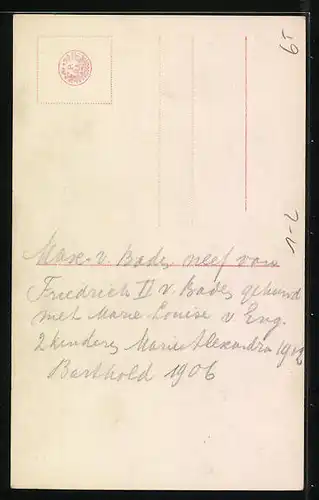 Max v. Baden neef van
Friedrich II v Baden gehuwd
met Marie Louise v Eng.
2 kinders Marie Alexandra 1902
Barthold 1906
1-2